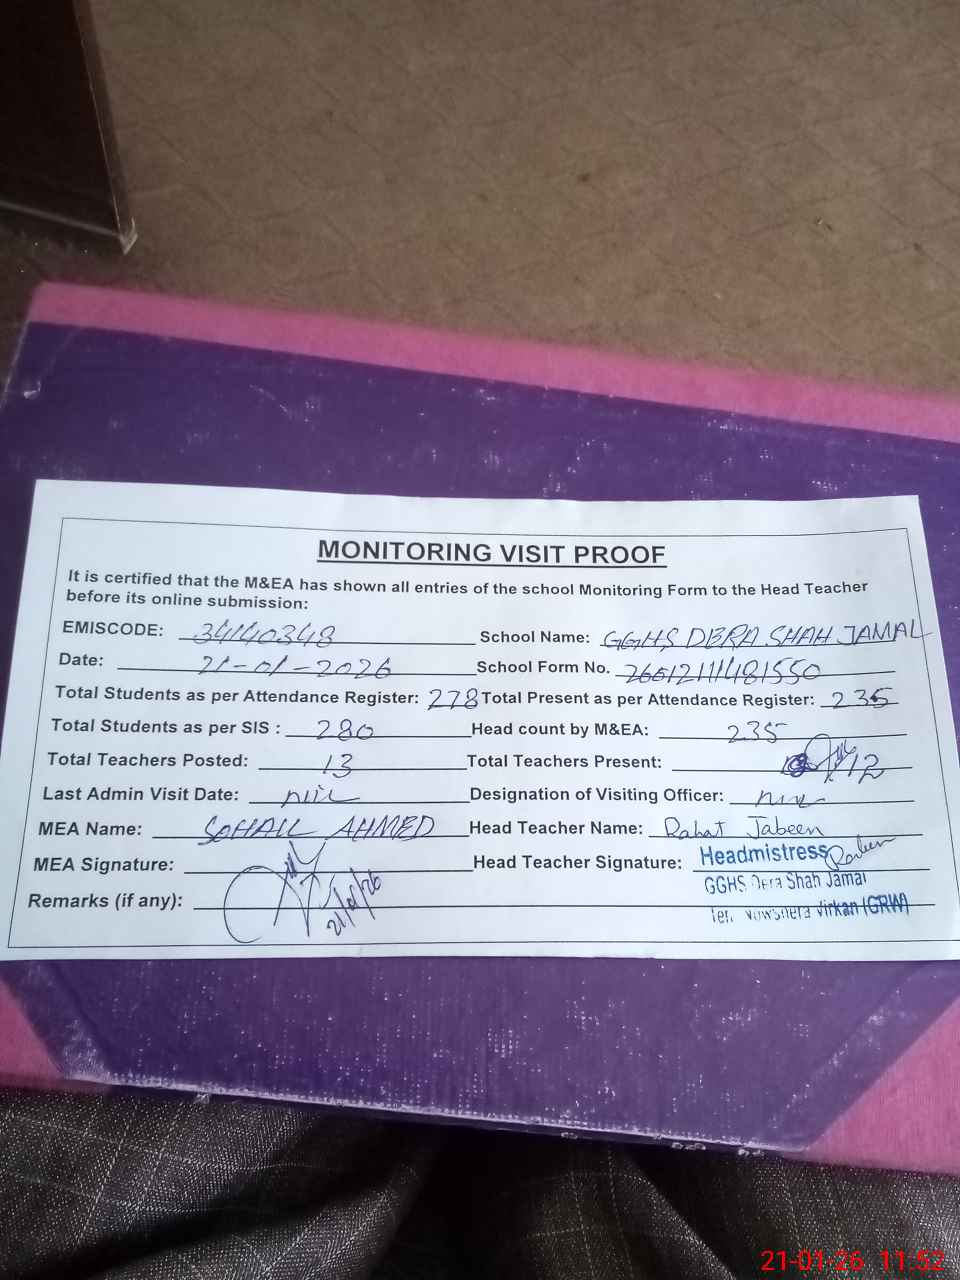 MONITORING VISIT PROOF
It is certified that the M&EA has shown all entries of the school Monitoring Form to the Head Teacher
before its online submission:
EMISCODE: 34140348 School Name: GGHS DERA SHAH JAMAL
Date: 21-01-2026 School Form No. 26612111481550
Total Students as per Attendance Register: 278 Total Present as per Attendance Register: 235
Total Students as per SIS : 280 Head count by M&EA: 235
Total Teachers Posted: 13 Total Teachers Present: 12
Last Admin Visit Date: Nil Designation of Visiting Officer: Nil
MEA Name: SOHAIL AHMED Head Teacher Name: Rahat Jabeen
MEA Signature: Head Teacher Signature: Headmistress
GGHS Dera Shah Jamal
Remarks (if any): 21/01/26 Teh. Nowshera Virkan (GRW)
21-01-26 11:52